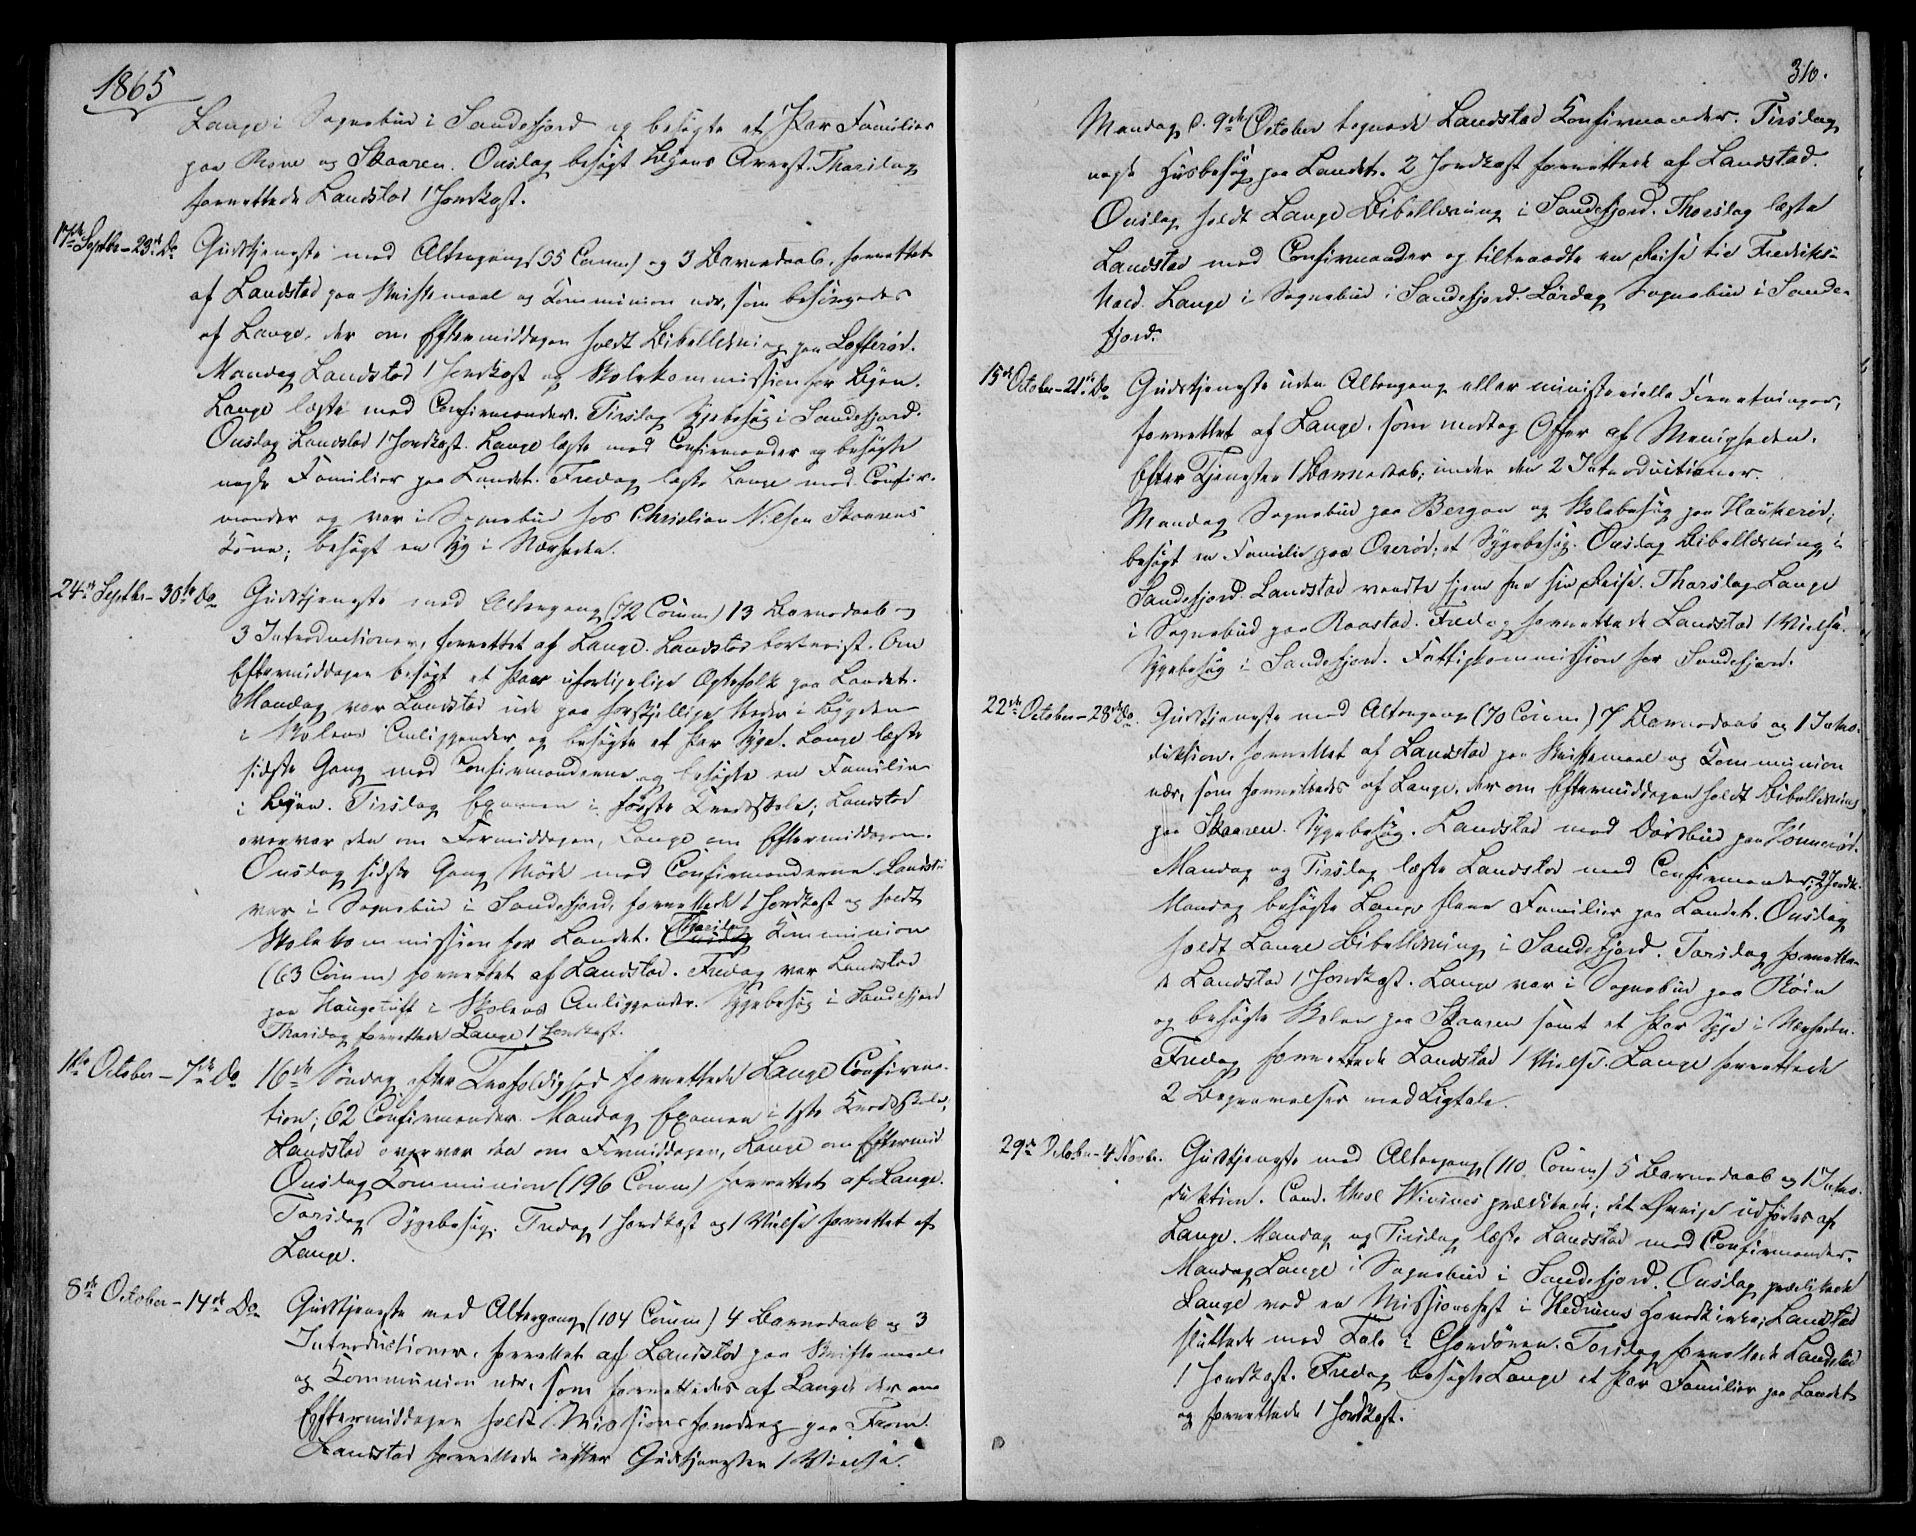 1865
Lange i Sognebud i Sandefjord og besøgte et Par Familier
paa Roue og Skaaren. Onsdag besøgt Byens Arrest. Thorsdag
forrettede Landstad 1 Jordkast.
17de Septbr – 23de Do Gudstjeneste med Altergang (55 Comm) og 3 Barnedaab, forrettet
af Landstad paa Skriftemaal og Kommunion nær, som besørgedes
af Lange, der om Eftermiddagen holdt Bibellæsning paa Lofterød.
Mandag Landstad 1 Jordkast og Skolekommission for Byen.
Lange læste med Confirmander. Tirsdag Sygebesøg i Sandefjord.
Onsdag Landstad 1 Jordkast. Lange læste med Confirmander og besøgte
nogle Familier paa Landet. Fredag læste Lange med Confir-
mander og var i Sognebud hos Christian Nilsen Skaarens
Kone; besøgt en Syg i Nærheden.
24de Septbr – 30te Do Gudstjeneste med Altergang (72 Comm) 13 Barnedaab og
3 Introductioner, forrettet af Lange. Landstad bortreist. Om
Eftermiddagen besøgt et Par uforligelige Ægtefolk paa Landet.
Mandag var Landstad ude paa forskjellige Steder i Bygden
i Skolens Anliggender og besøgte et Par Syge. Lange læste
sidste Gang med Confirmanderne og besøgte en Familie
i Byen. Tirsdag Examen i første Kredsskole; Landstad
overvar den om Formiddagen, Lange om Eftermiddagen.
Onsdag sidste Gang Møde med Confirmanderne. Landst:
var i Sognebud i Sandefjord, forrettede 1 Jordkast og holdt
Skolekommission for Landet. Thorsdag Kommunion
(63 Comm) forrettet af Landstad. Fredag var Landstad
paa Haugetuft i Skolens Anliggender. Sygebesøg i Sandefjord
Thorsdag forrettede Lange 1 Jordkast.
1ste October – 7de Do 16de Søndag efter Trefoldighed forrettede Lange Confirma-
tion; 62 Confirmander. Mandag Examen i 1ste Kredsskole;
Landstad overvar den om Formiddagen, Lange om Eftermid.
Onsdag Kommunion (196 Comm) forrettet af Lange.
Torsdag Sygebesøg. Fredag 1 Jordkast og 1 Vielse forrettet af
Lange.
8de October – 14de Do Gudstjeneste med Altergang (104 Comm) 4 Barnedaab og 3
Introductioner, forrettet af Landstad paa Skriftemaal
og Kommunion nær, som forrettedes af Lange der om
Eftermiddagen holdt Missionsforedrag paa Fram.
Landstad forrettede efter Gudstjenesten 1 Vielse.
310.
Mandag d. 9de October begyndte Landstad Confirmander. Tirsdag
nogle Husbesøg paa Landet. 2 Jordkast forrettede af Landstad.
Onsdag holdt Lange Bibellæsning i Sandefjord. Thorsdag læste
Landstad med Confirmander og tiltraadte en Reise til Fredriks-
hald. Lange i Sognebud i Sandefjord. Lørdag Sognebud i Sande-
fjord.
15de October – 21de Do Gudstjeneste uden Altergang eller ministerielle Forretninger,
forrettet af Lange, som modtog Offer af Menigheden.
Efter Tjenesten 1 Barnedaab; under den 2 Introductioner.
Mandag Sognebud paa Bergan og Skolebesøg paa Haukerød;
besøgt en Familie paa Ørerød; et Sygebesøg. Onsdag Bibellæsning i
Sandefjord. Landstad vendte hjem fra sin Reise. Thorsdag Lange
i Sognebud paa Raastad. Fredag forrettede Landstad 1 Vielse.
Sygebesøg i Sandefjord. Fattigkommission for Sandefjord.
22de October – 28de Do. Gudstjeneste med Altergang (70 Comm) 7 Barnedaab og 1 Intro-
duktion, forrettet af Landstad paa Skriftemaal og Kommunion
nær, som forrettedes af Lange, der om Eftermiddagen holdt Bibellæsning
paa Skaaren. Sygebesøg. Landstad med Dødsbud paa Hønnerød.
Mandag og Tirsdag læste Landstad med Confirmander; 2 Jordk.
Mandag besøgte Lange flere Familier paa Landet. Onsdag
holdt Lange Bibellæsning i Sandefjord. Torsdag forrette-
de Landstad 1 Jordkast. Lange var i Sognebud paa Röin
og besøgte Skolen paa Skaaren samt et Par Syge i Nærheden.
Fredag forrettede Landstad 1 Vielse. Lange forrettede
2 Begravelser med Ligtale.
29de October – 4 Novbr. Gudstjeneste med Altergang (110 Comm.) 5 Barnedaab og 1 Intro-
duktion. Cand. theol prædikede; det Øvrige udførtes af
Lange. Mandag og Tirsdag læste Landstad med Confirmander.
Mandag Lange i Sognebud i Sandefjord. Onsdag prædikede
Lange ved en Missionsfest i Hedrums Hovedkirke; Landstad
sluttede med Tale i Chordøren. Torsdag forrettede Landstad
1 Jordkast. Fredag besøgte Lange et Par Familier paa Landet
og forrettede 1 Jordkast.